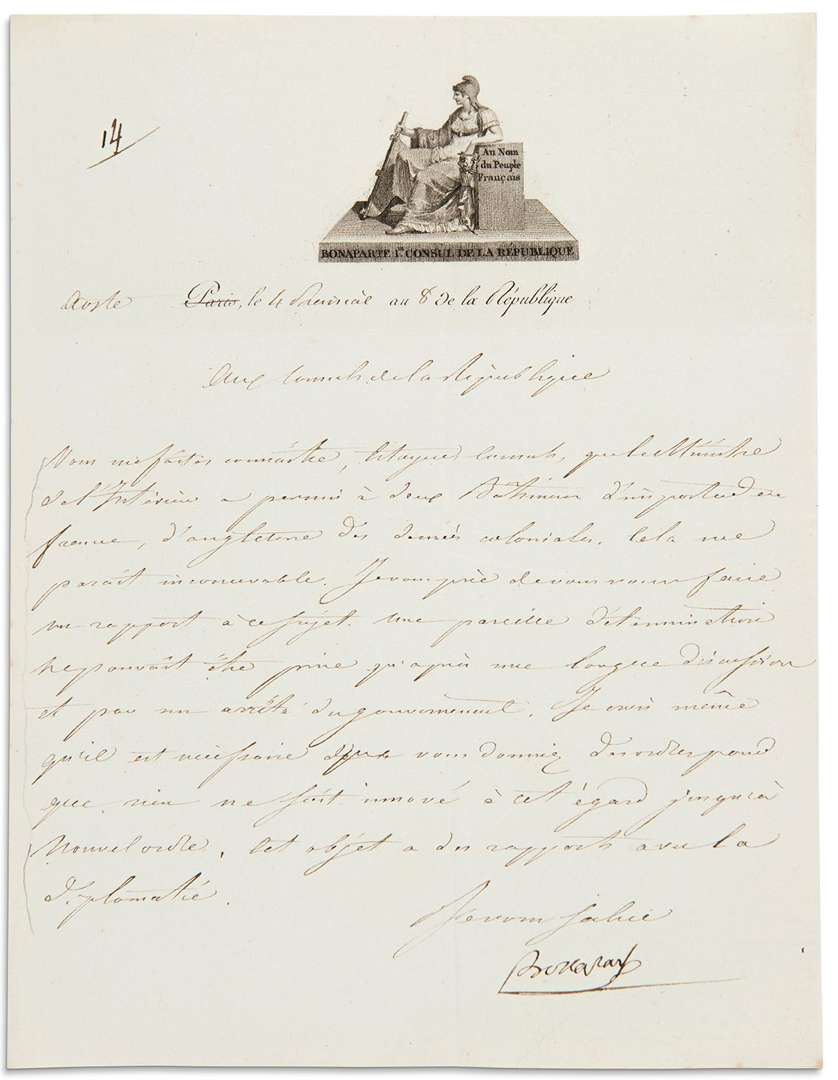 14
Au Nom
du Peuple
Français
BONAPARTE 1er CONSUL DE LA RÉPUBLIQUE
Aoste Paris, le 4 Prairial an 8 de la République
Aux Consuls de la République
Vous me faites connaître, Citoyens Consuls, que le Ministre
de l'Intérieur a permis à deux Bâtimens d'importer en
france, d'angleterre des denrées coloniales. Cela me
parait inconcevable. Je vous prie de vous en faire
un rapport à ce sujet. Une pareille détermination
ne pouvait être prise qu'après une longue discussion
et par un arrêté du gouvernement. Je crois même
qu'il est nécessaire que vous donniez des ordres pour
que rien ne soit innové à cet égard jusqu'à
Nouvel ordre. Cet objet a des rapports avec la
diplomatie.
Je vous salue
Bonaparte